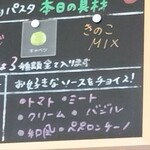 パスタ 本日の具材
キャベツ
きのこ
MIX
3種類全て入ります
お好きなソースをチョイス!
・トマト ・ミート
・クリーム ・バジル
・和風 ・ペペロンチーノ